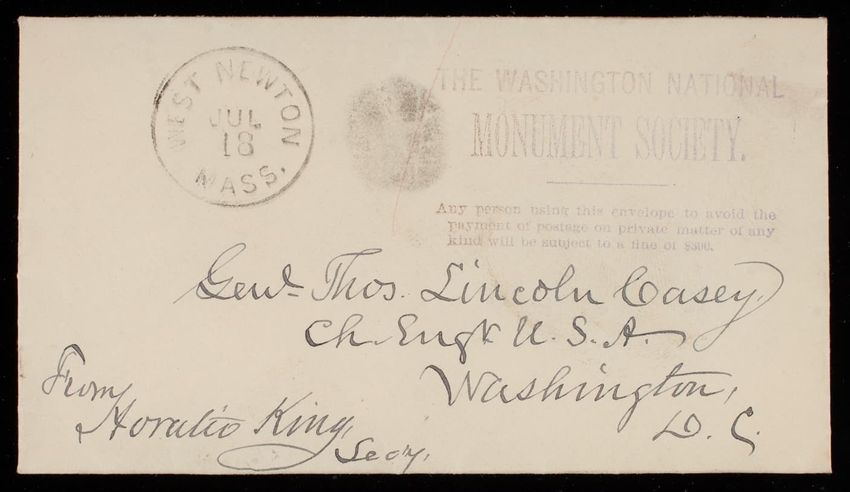 WEST NEWTON
JUL
18
MASS.
THE WASHINGTON NATIONAL
MONUMENT SOCIETY.
Any person using this envelope to avoid the
payment of postage on private matter of any
kind will be subject to a fine of $300.
Genl Thos. Lincoln Casey,
Ch. Engr U.S.A.
Washington,
D.C.
From
Horatio King,
Secy.